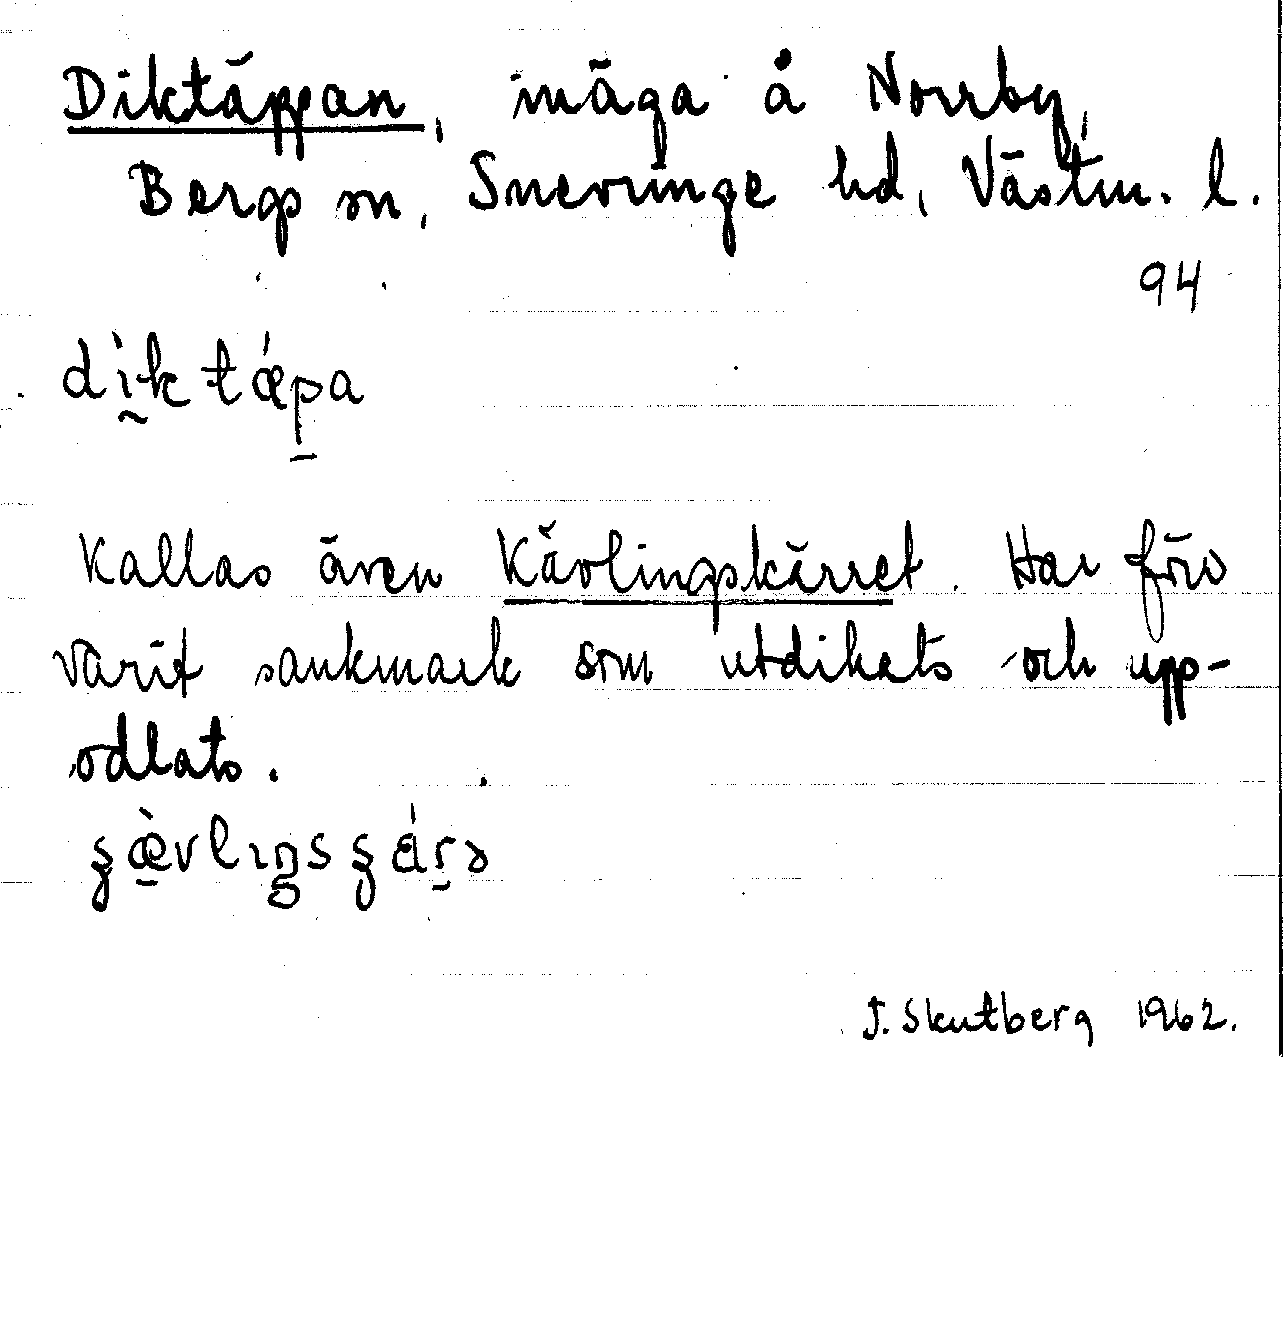 Diktäppan, inäga å Norrby,
Bergs sn, Snevringe hd, Västm. l.
94
dìktǽpa
Kallas även Kävlingskärret. Har förr
varit sankmark som utdikats och upp-
odlats.
J. Skutberg 1962.